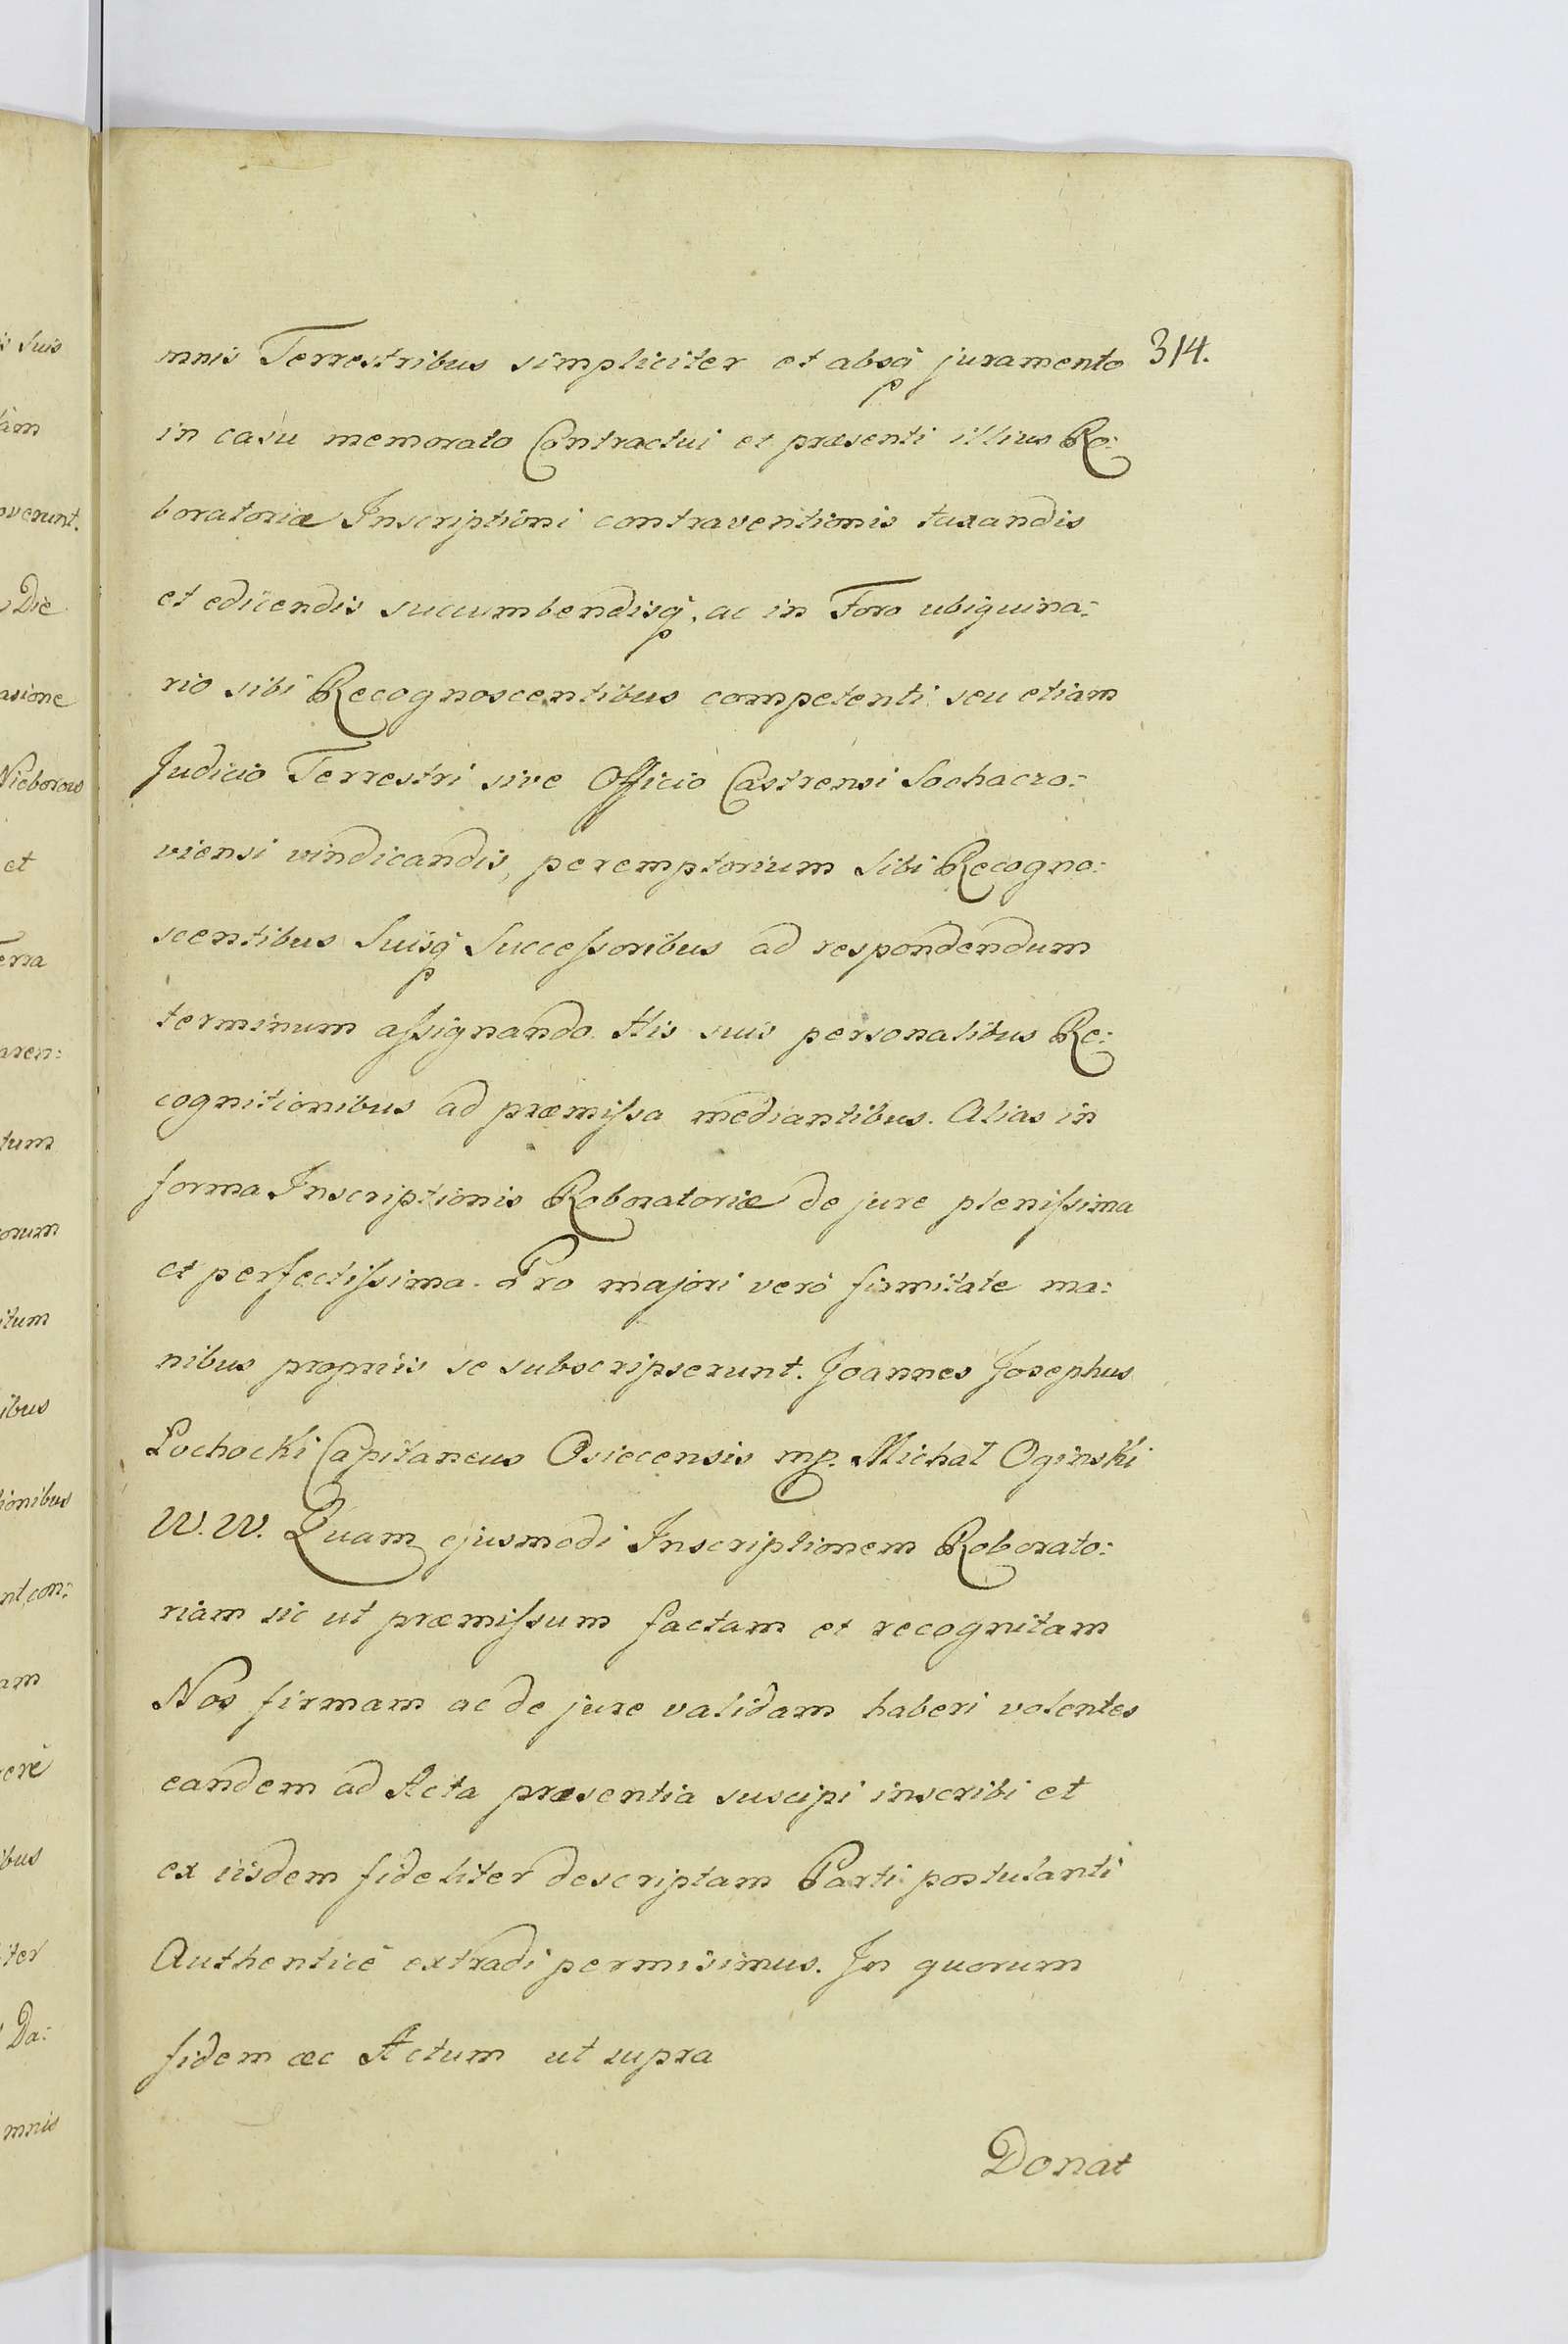 mnis Terrestribus simpliciter et absq̃ juramento 314.
in casu memorato Contractui et præsenti illius Ro:
boratoriæ Inscriptioni contraventionis taxandis
et edicendis succumbendisq̃, ac in Foro ubiquina:
rio sibi Recognoscentibus competenti seu etiam
Judicio Terrestri sive Officio Castrensi Sochaczo:
viensi vindicandis, peremptorium sibi Recogno:
scentibus Suisq̃ Succeſsoribus ad respondendum
terminum aſsignando. His suis personalibus Re:
cognitionibus ad præmiſsa mediantibus. Alias in
forma Inscriptionis Roboratoriæ de jure pleniſsima
et perfectiſsima. Pro majori verò firmitate ma:
nibus propriis se subscripserunt. Joannes Josephus
Łochocki Capitaneus Osiecensis mp. Michał Oginski
W. W. Quam ejusmodi Inscriptionem Roborato:
riam sic ut præmiſsum factam et recognitam
Nos firmam ac de jure validam haberi volentes
eandem ad Acta præsentia suscipi inscribi et
ex iisdem fideliter descriptam Parti postulanti
Authenticè extradi permisimus. In quorum
fidem æc Actum ut supra
Donat
is Suis
tàm
overunt.
Die
asione
Nieborow
et
Terra
aren:
tum
orum
itum
ibus
tionibus
nt con:
am
verè
ibus
iter
Da:
mnis